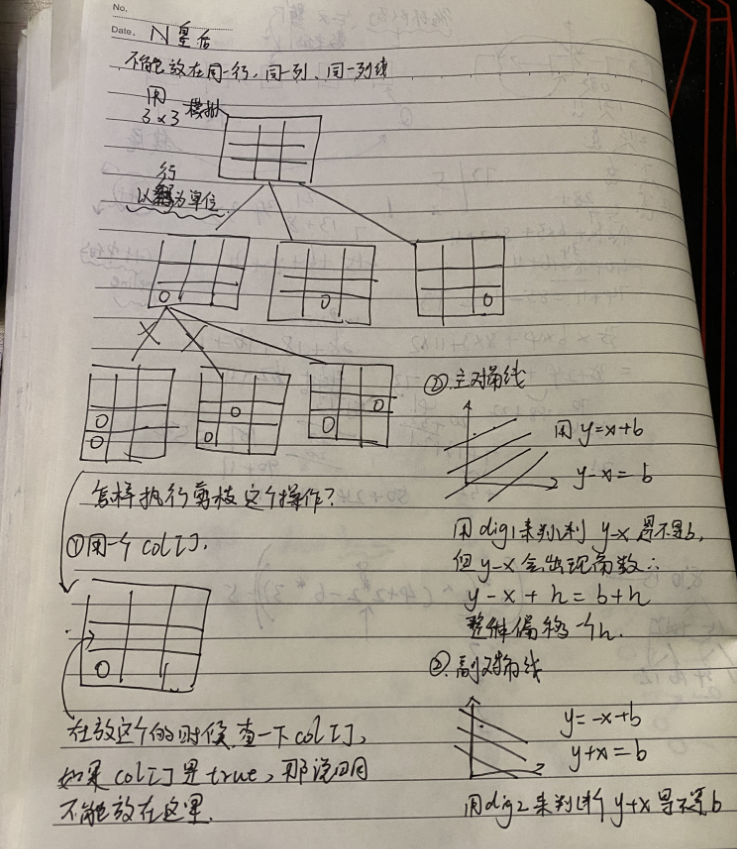 No.
Date. N皇后
不能放在同一行、同一列、同一列线
用
3×3 模拟
行
以为单位
O
O
O
O
O
O
O
O
O
怎样执行剪枝这个操作?
①用一个 col[],
O
在放这个的时候,查一下 col[],
如果 col[] 是 true, 那说明
不能放在这里.
②.主对角线
用 y=x+b
y-x=b
用 dig1 来判断 y-x 是不是b,
但 y-x 会出现负数∴
y-x+n=b+n
整体偏移一个n.
③.副对角线
y=-x+b
y+x=b
用dig2来判断 y+x 是不是b